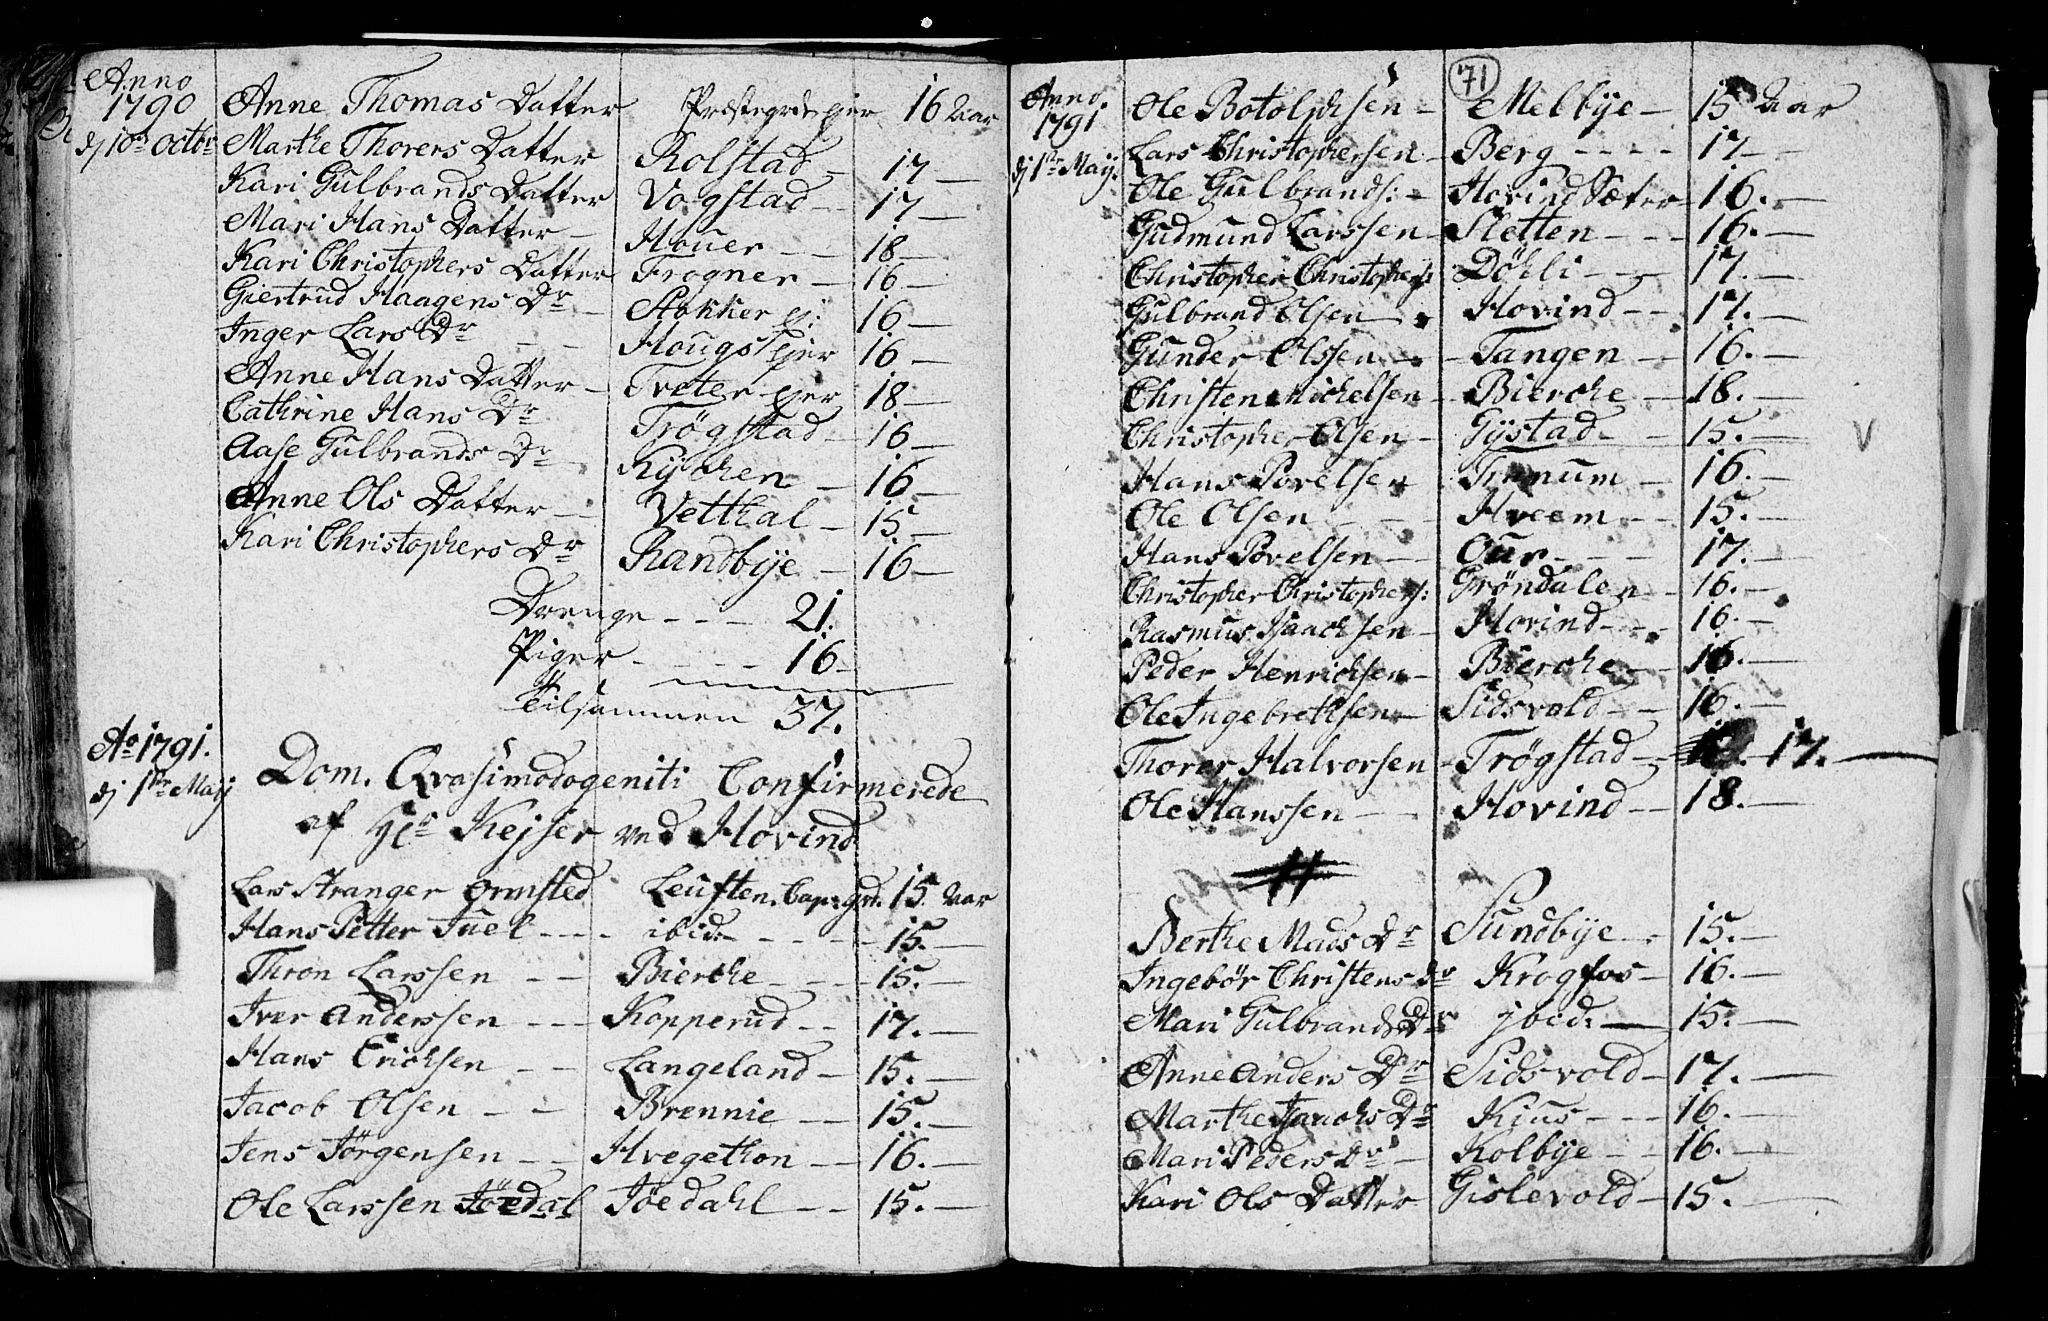 Anno
1790
dj 10de Octbr
Anne Thomas Datter Præstegrds ejer 16 Aar
Marthe Thorers Datter Rolstad 17
Kari Gulbrands Datter Vogstad 17
Mari Hans Datter Houer 18
Kari Christophers Datter Frogner 16
Giertrud Haagens Dr Stokker ej: 16
Inger Lars Dr Hougs ejer 16
Anne Hans Datter Tveter ejer 18
Cathrine Hans Dr Trøgstad 16
Aase Gulbrands Dr Kÿchen 16
Anne Ols Datter Vetthal 15
Kari Christophers Dr Randbÿe 16
Drenge - - - 21.
Piger - - - - 16
Tilsammen 37.
Ao 1791.
dj 1ste Maÿ
Dom. Qvasimodogeniti Confirmerede
af Hr Kejser ved Hovind
Lars Stranger Ormsted Leüften. Cap: grd. 15 Aar
Hans Petter Juel - - - ibid: - - - 15.
Thron Larssen - - Bierche - - - 15.
Iver Anderssen - - - Kopperud - - 17.
Hans Erichsen - - Langeland - 15.
Jacob Olsen - - Brennie - - 15.
Jens Jörgensen - - Hvegethon - - 16.
Ole Larssen Jöedal Jöedahl - - 15.
71
Anno
1791
dj 1ste Maÿ
Ole Botolphsen - Melbÿe - 15 Aar
Lars Christophersen - Berg - - - - 17
Ole Gulbrands: - Hovind Sæter 16.
Gudmund Larssen - Sletten - - - 16.
Christopher Christophers: Döhli - - - 17.
Gulbrand Olsen Hovind - - 17.
Gunder Olssen - - Tangen - - 16.
Christen Michelsen - Bierche - 18.
Christopher Olsen - Gÿstad - - 15.
Hans Povelsen Trenum - 16.
Ole Olsen - - - Hveem - - 15.
Hans Povelsen - - Our - - - - 17.
Christopher Christophers: Gröndalen - 16.
Rasmus Isaachsen - Hovind - - - 16.
Peder Henrichsen - Bierche - - 16.
Ole Ingebrethsen - Sidsvold - - 16.
Thorer Halvorsen - Trögstad - - 17.
Ole Hanssen - - Hovind - - 18.
Berthe Mads Dr Sundbÿe - - 15.
Ingebör Christens Dr Krogfos - 16.
Mari Gulbrands Dr ibid: - 15.
Anne Anders Dr Sidsvold - 17.
Marthe Isaachs Dr Kius - - - 16.
Mari Peders Dr - Kolbÿe - - 16.
Kari Ols Datter Gislevold - 15.